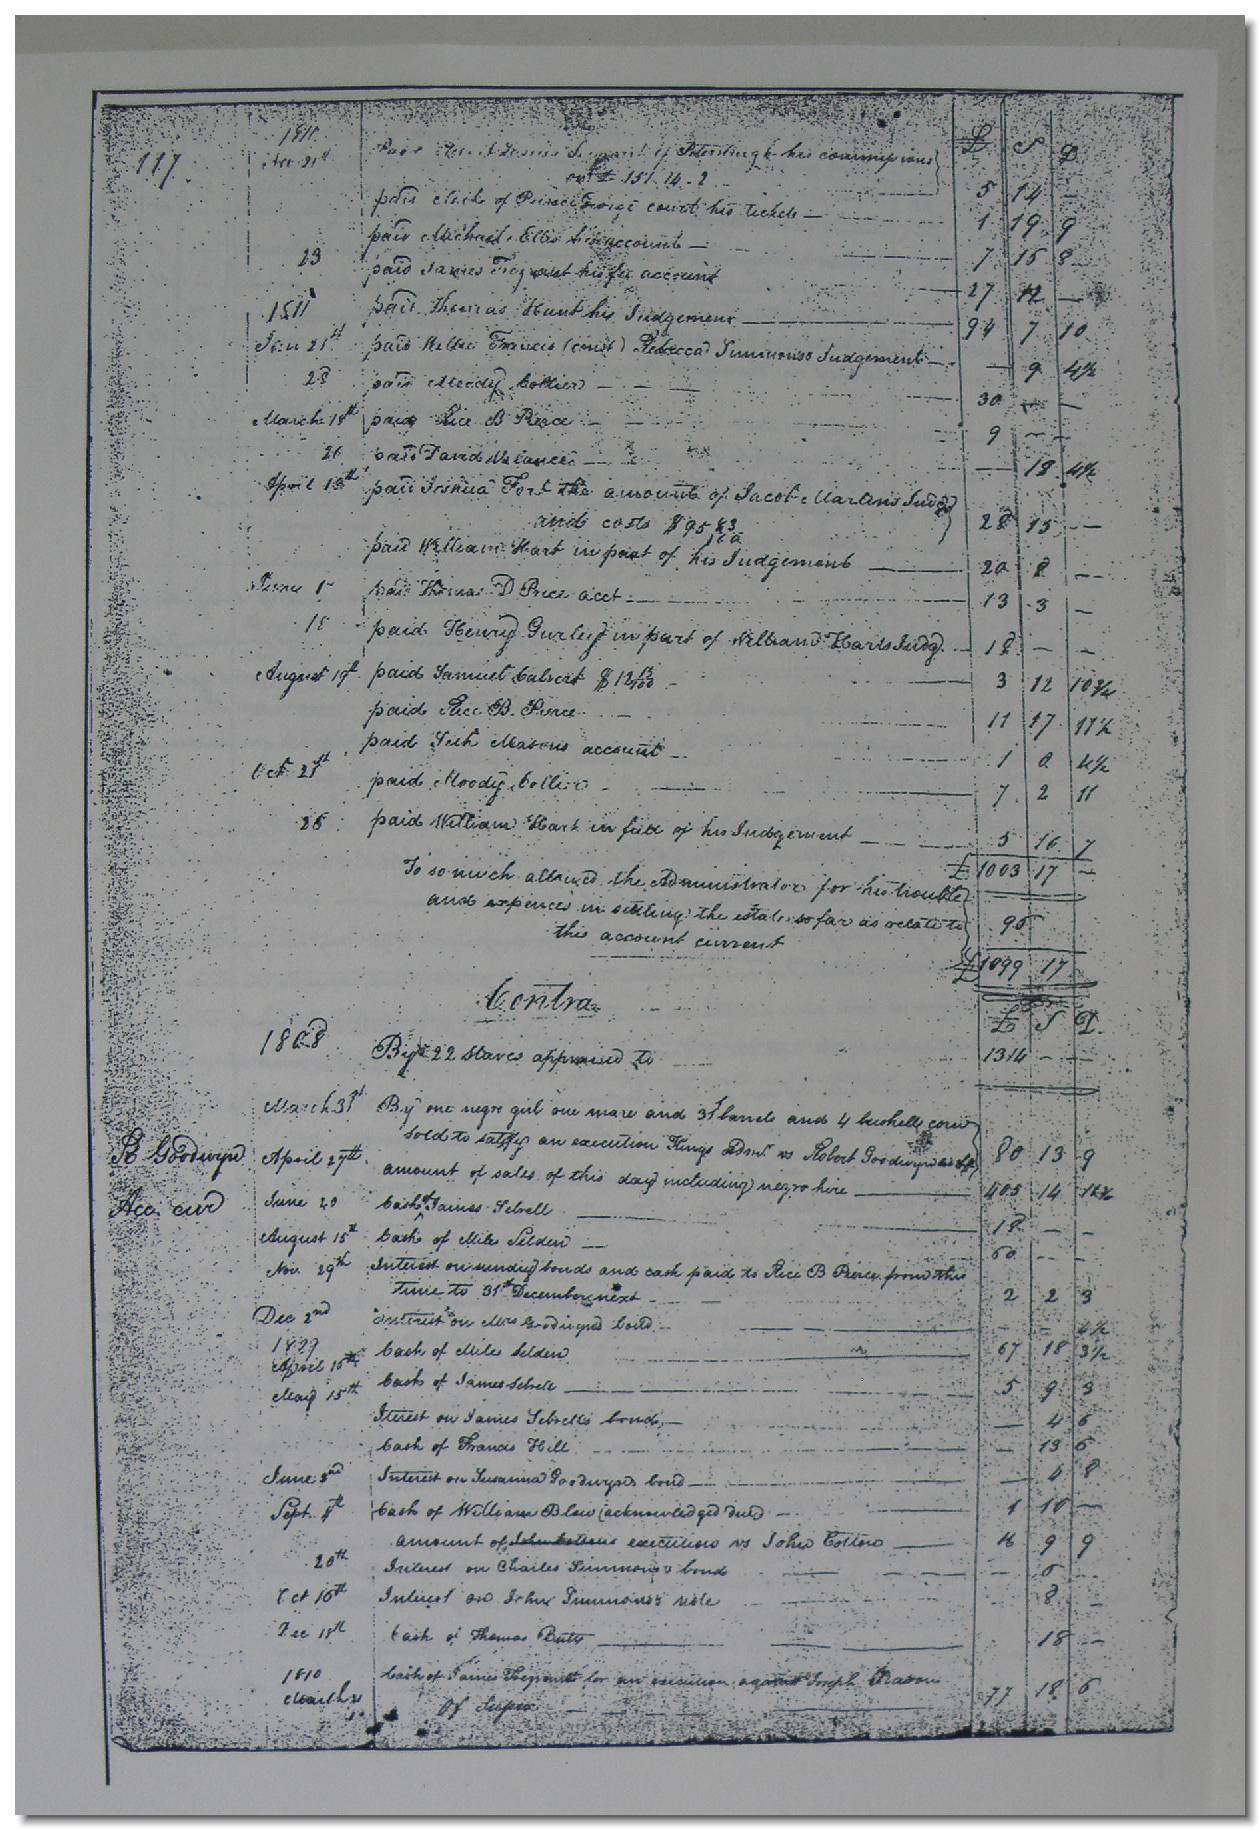 117
£ S D
of Petersburg his commissions
on £ 151.14.2 5 14 -
paid clerk of Prince George court his tickets 1 19 9
paid Michael Ellis his account 7 15 8
23 paid James his fee account 27 12 -
1811 paid Thomas Hunt his Judgement 94 7 10
Jan 21st paid Francis (const) Rebecca Simmons's Judgement - 9 4½
28 paid Moody Collier 30 - -
March 18th paid Rice B Pierce 9 - -
26 paid David - 18 4½
April 13th paid Joshua Fort the amount of Jacob Marlins Judg
and costs $95 83/100 28 15 -
paid William Hart in part of his Judgement 20 8 -
paid Thomas D Price acct 13 3 -
18 paid Henry Gurley in part of William Harts Judg. 18 - -
August 19th paid Samuel Calvert $12 3 12 10¾
paid Rice B. Pierce 11 17 11½
paid Masons account 1 0 4½
Oct 21st paid Moody Collier 7 2 11
28 paid William Hart in full of his Judgement 5 16 7
£ 1003 17 -
To so much allowed the Administrator for his trouble
and expences in settling the estate so far as relate to
this account current 96
£ 1099 17
Contra
£ S D.
1808 By 22 slaves appraised to 1314 - -
March 31st By one negro girl one mare and 31 barrels and 4 bushells corn
sold to satisfy an execution Kings Admr vs Robert Goodwyn 80 13 9
R Goodwyn April 27th amount of sales of this day including negro hire 405 14
Acc. cur'd June 20 Cash of James Sebrell 18 - -
August 15th Cash of Miles Selden 60 - -
Nov. 29th Interest on sundry bonds and cash paid to Rice B Pierce from this
time to 31st December next 2 2 3
Dec 2nd interest on Mrs Goodwyns bond - - 4½
1809
April 15th Cash of Miles Selden 67 18 3½
May 15th Cash of James Sebrell 5 9 3
Iterest on James Sebrells bond - 4 6
Cash of Francis Hill - 13 6
June 3nd Interest on Susanna Goodwyns bond - 4 8
Sept. Cash of William Blow (acknowledged due) 1 10 -
amount of execution vs John Cotton 16 9 9
20th Interest on Charles Simmons's bond - 6
Oct 16th Interest on John Simmons's note 8
Dec 18th Cash of Thomas Butts 18 -
1810
March Cash of James for an execution against Joseph Mason
of Sussex 77 18 6